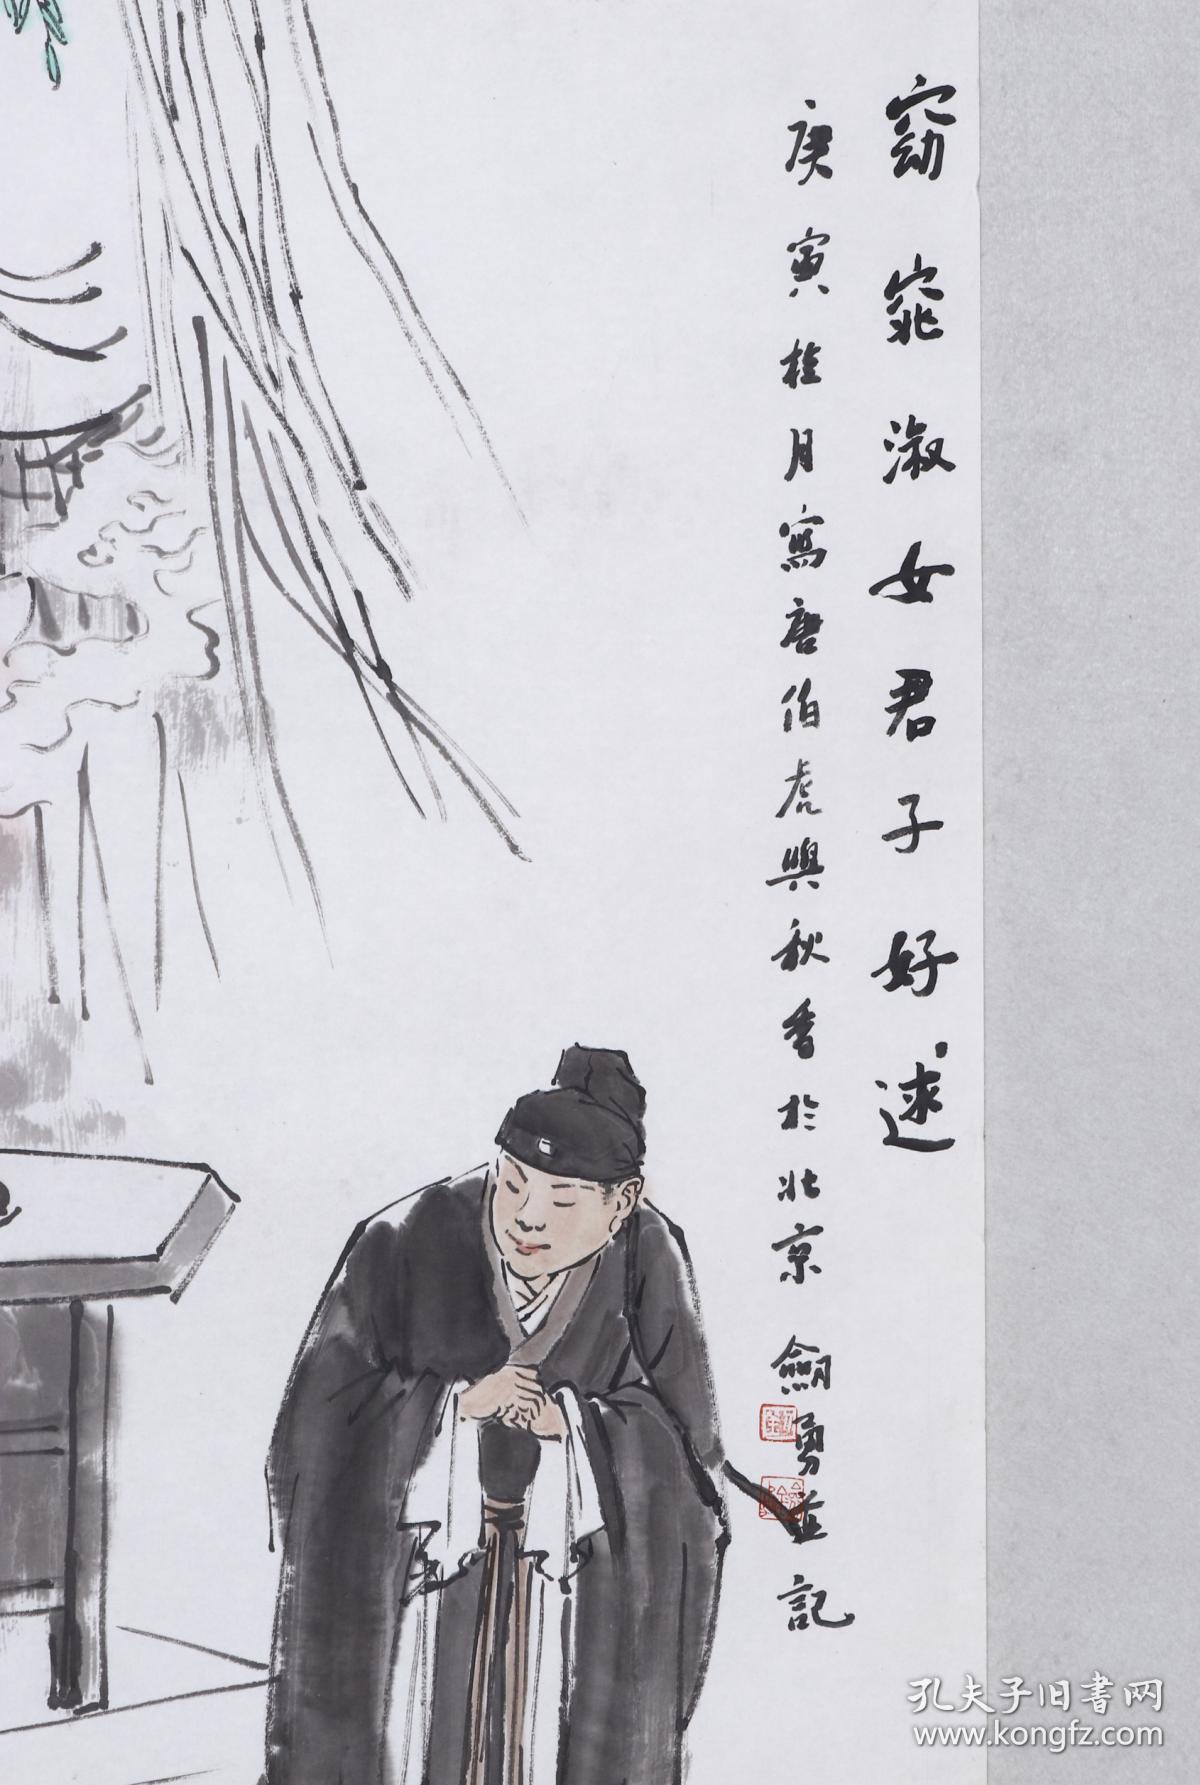 窈窕淑女君子好逑
庚寅桂月寫唐伯虎與秋香於北京 劍勇並記
孔夫子旧書网
www.kongfz.com